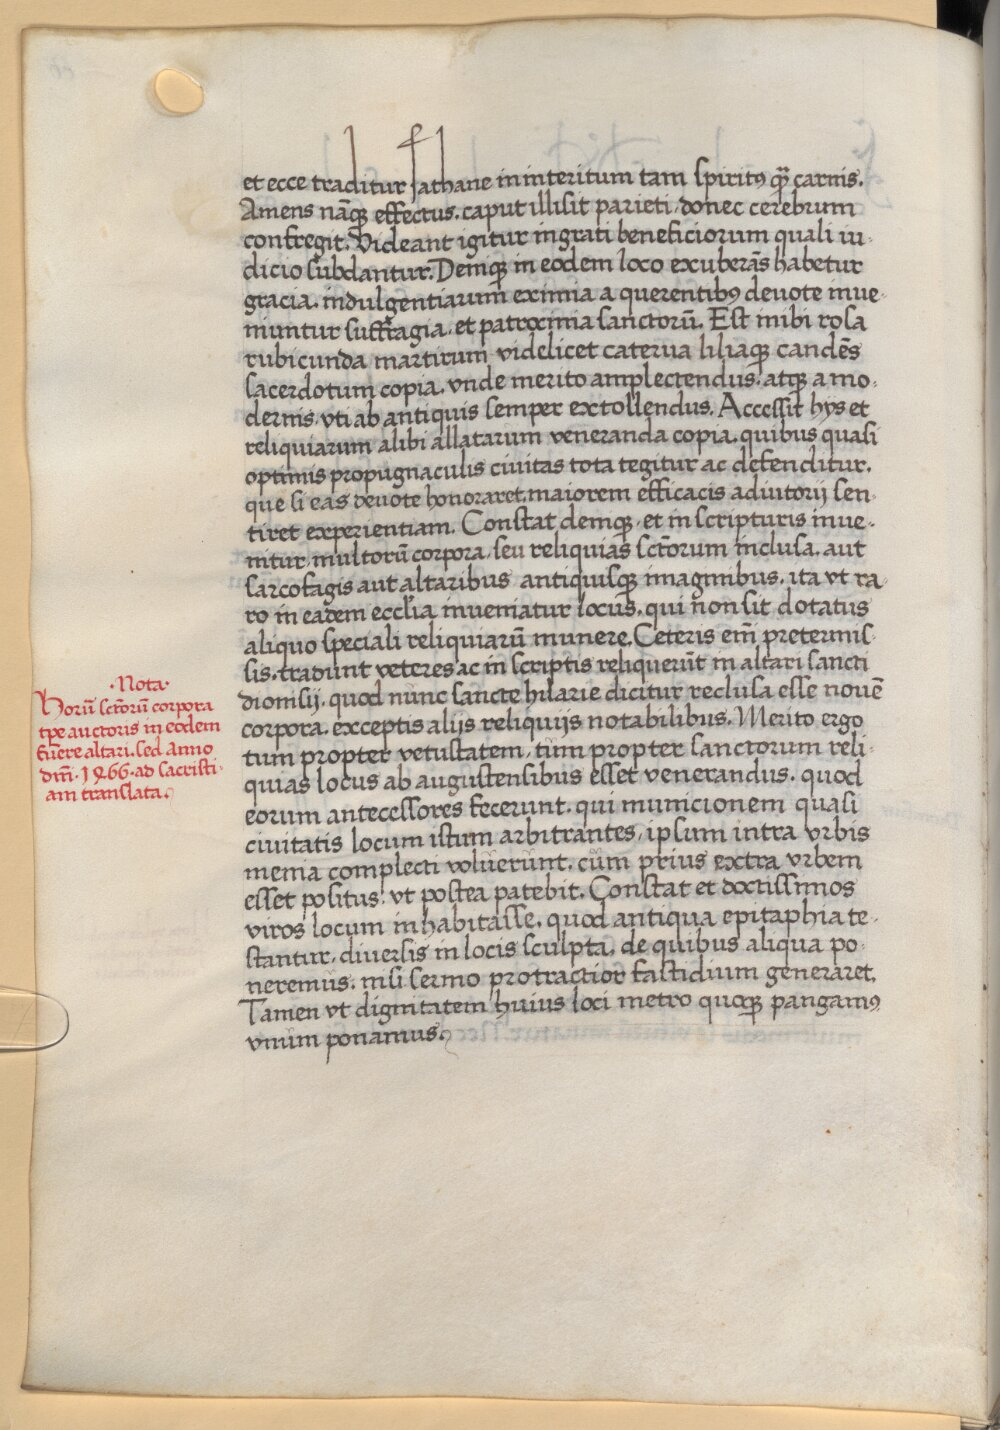 et ecce traditur sathane in interitum tam spiritꝰ qꝫ carnis.
Amens nāqꝫ effectus. caput illisit parieti. donec cerebrum
confregit. Videant igitur ingrati beneficiorum quali iu-
dicio subdantur. Deniqꝫ in eodem loco exuberās habetur
gracia. indulgentiarum eximia a querentibꝰ deuote inue-
niuntur suffragia. et patrocinia sanctorū. Est inibi rosa
rubicunda martirum videlicet caterua liliaqꝫ candēs
sacerdotum copia. vnde merito amplectendus. atqꝫ a mo-
dernis. vti ab antiquis semper extollendus. Accessit hys et
reliquiarum alibi allatarum veneranda copia. quibus quasi
optimis propugnaculis ciuitas tota tegitur ac defenditur.
que si eas deuote honoraret. maiorem efficacis adiutorij sen-
tiret experientiam. Constat deniqꝫ. et in scripturis inue-
nitur multorū corpora. seu reliquias sctōrum inclusa. aut
sarcofagis aut altaribus antiquisqꝫ imaginibus. ita vt ra-
ro in eadem ecclīa inueniatur locus. qui non sit dotatus
aliquo speciali reliquiarū munere. Ceteris em̄ pretermis-
sis. tradunt veteres ac in scriptis reliquerūt in altari sancti
dionisij. quod nunc sancte hilarie dicitur reclusa esse nouē
corpora. exceptis alijs reliquijs notabilibus. Merito ergo
tum propter vetustatem. tum propter sanctorum reli-
quias locus ab augustensibus esset venerandus. quod
eorum antecessores fecerunt. qui municionem quasi
ciuitatis locum istum arbitrantes. ipsum intra vrbis
menia complecti voluerunt. cum prius extra vrbem
esset positus: vt postea patebit. Constat et doctissimos
viros locum inhabitasse. quod antiqua epitaphia te-
stantur. diuersis in locis sculpta. de quibus aliqua po-
neremus. nisi sermo protractior fastidium generaret.
Tamen vt dignitatem huius loci metro quoqꝫ pangamꝰ
vnum ponamus.
·Nota·
Horū sctōrū corpora
tp̄e auctoris in eodem
fuēre altari. sed anno
dn̄i. 1466. ad sacristi-
am translata.